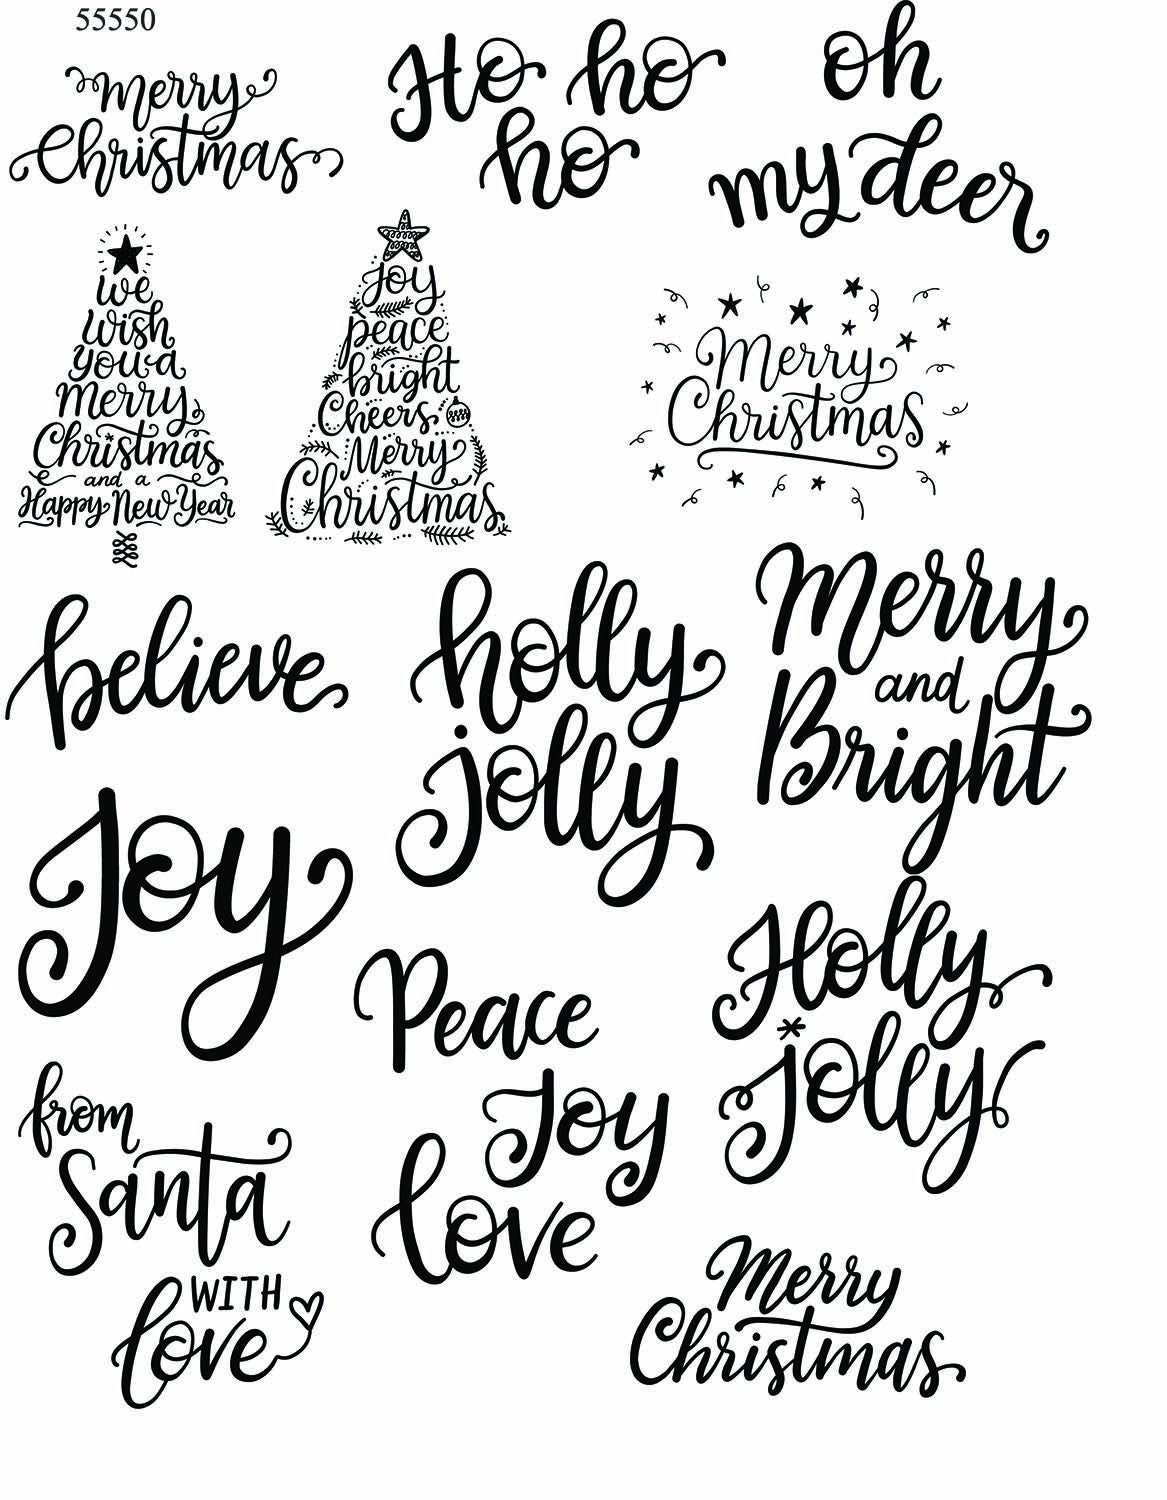 55550
Merry
Christmas
Ho ho
ho
oh
my deer
we
wish
you a
Merry
Christmas
and a
Happy New Year
Joy
peace
bright
Cheers
Merry
Christmas
Merry
Christmas
believe
holly
jolly
Merry
and
Bright
Joy
Peace
Joy
love
Holly
jolly
from
Santa
WITH
love
Merry
Christmas